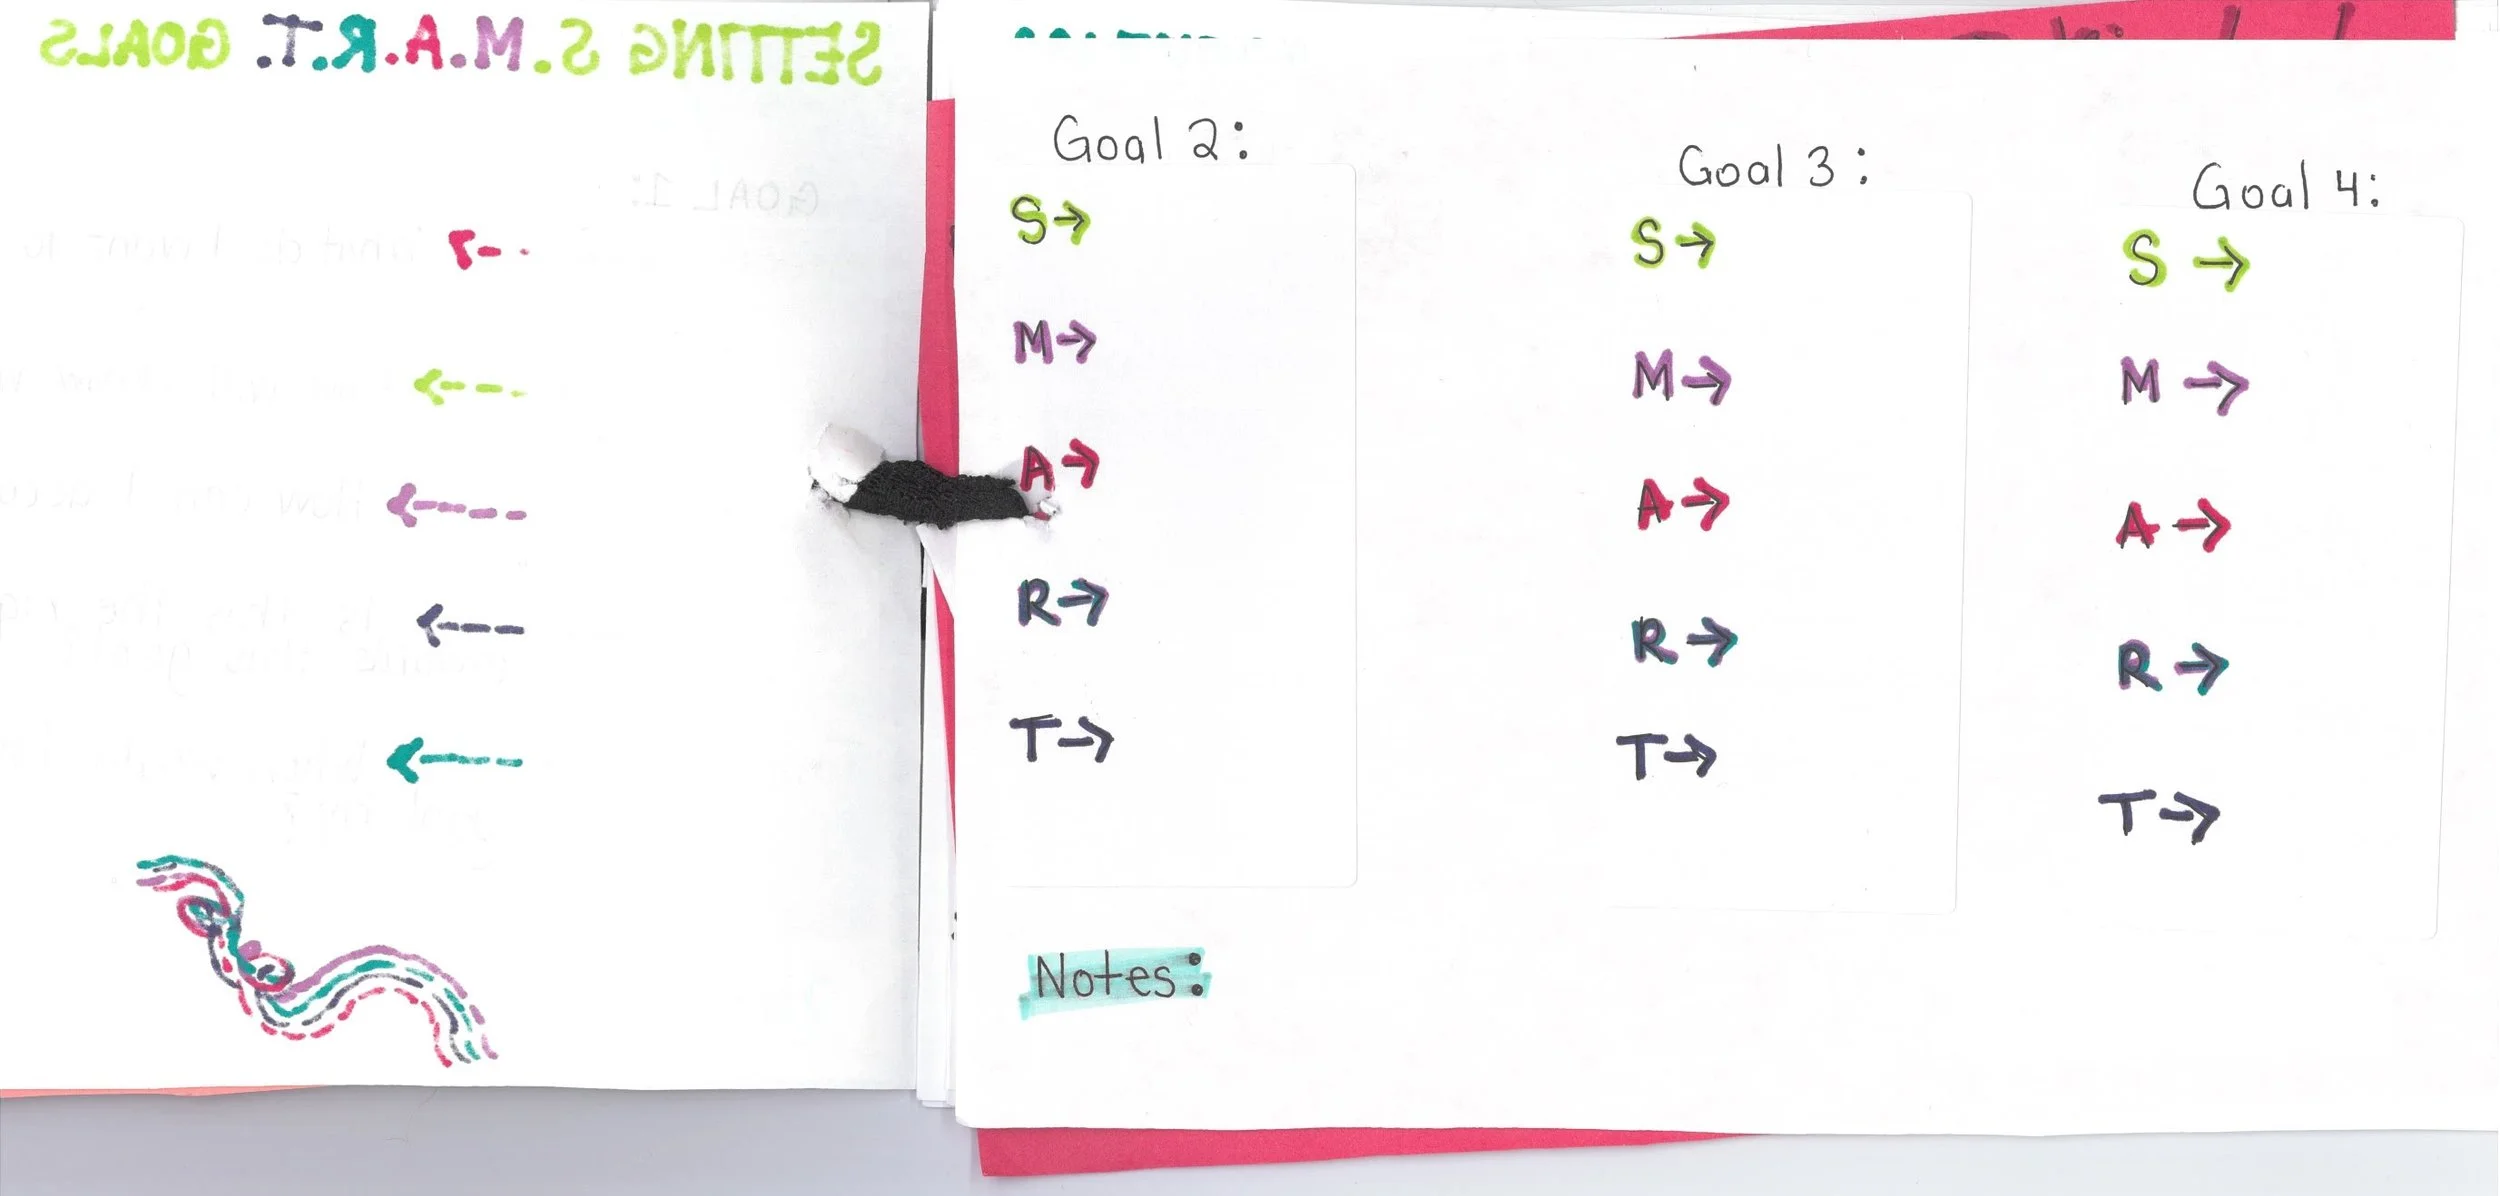 SETTING S.M.A.R.T. GOALS
GOAL 1:
Goal 2:
S→
M→
A→
R→
T→
Notes:
Goal 3:
S→
M→
A→
R→
T→
Goal 4:
S→
M→
A→
R→
T→